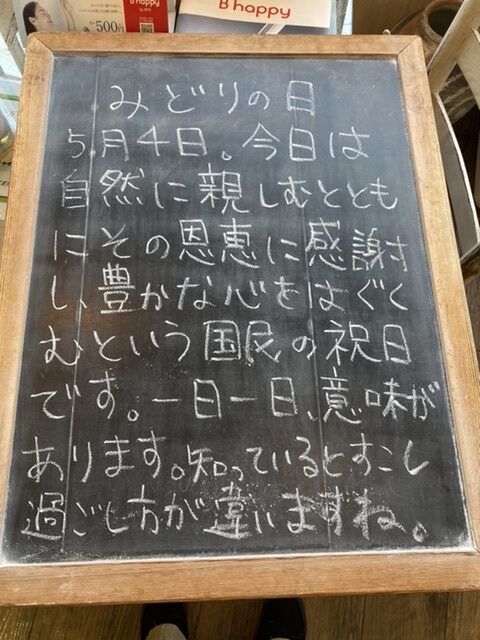 B happy
500円
B happy
みどりの日
5月4日。今日は
自然に親しむととも
にその恩恵に感謝す
し、豊かな心をはぐく
むという国民の祝日
です。一日一日、意味が
あります。知っているとすこし
過ごし方が違いますね。